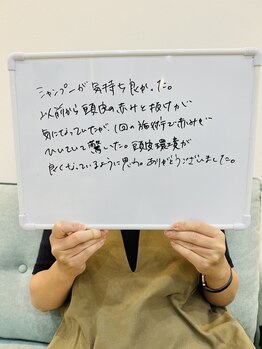 シャンプーが気持ち良かった。
以前から頭皮の赤みと抜けが
気になっていたが、1回の施術で赤みが
ひいていて驚いた。頭皮環境が
良くなっているように思う。ありがとうございました。